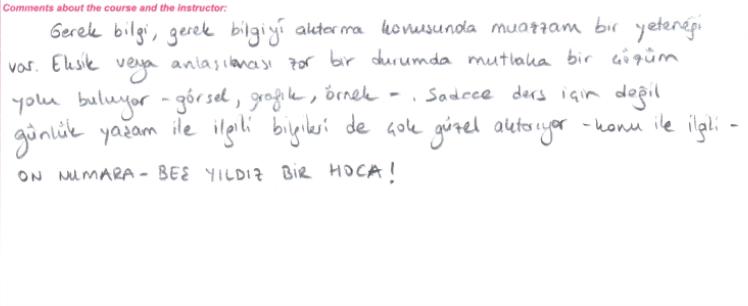 Comments about the course and the instructor:
Gerek bilgi, gerek bilgiyi aktarma konusunda muazzam bir yeteneği
var. Eksik veya anlaşılması zor bir durumda mutlaka bir çözüm
yolu buluyor - görsel, grafik, örnek - . Sadece ders için değil
günlük yaşam ile ilgili bilgileri de çok güzel aktarıyor - konu ile ilgili -
ON NUMARA - BEŞ YILDIZ BİR HOCA!